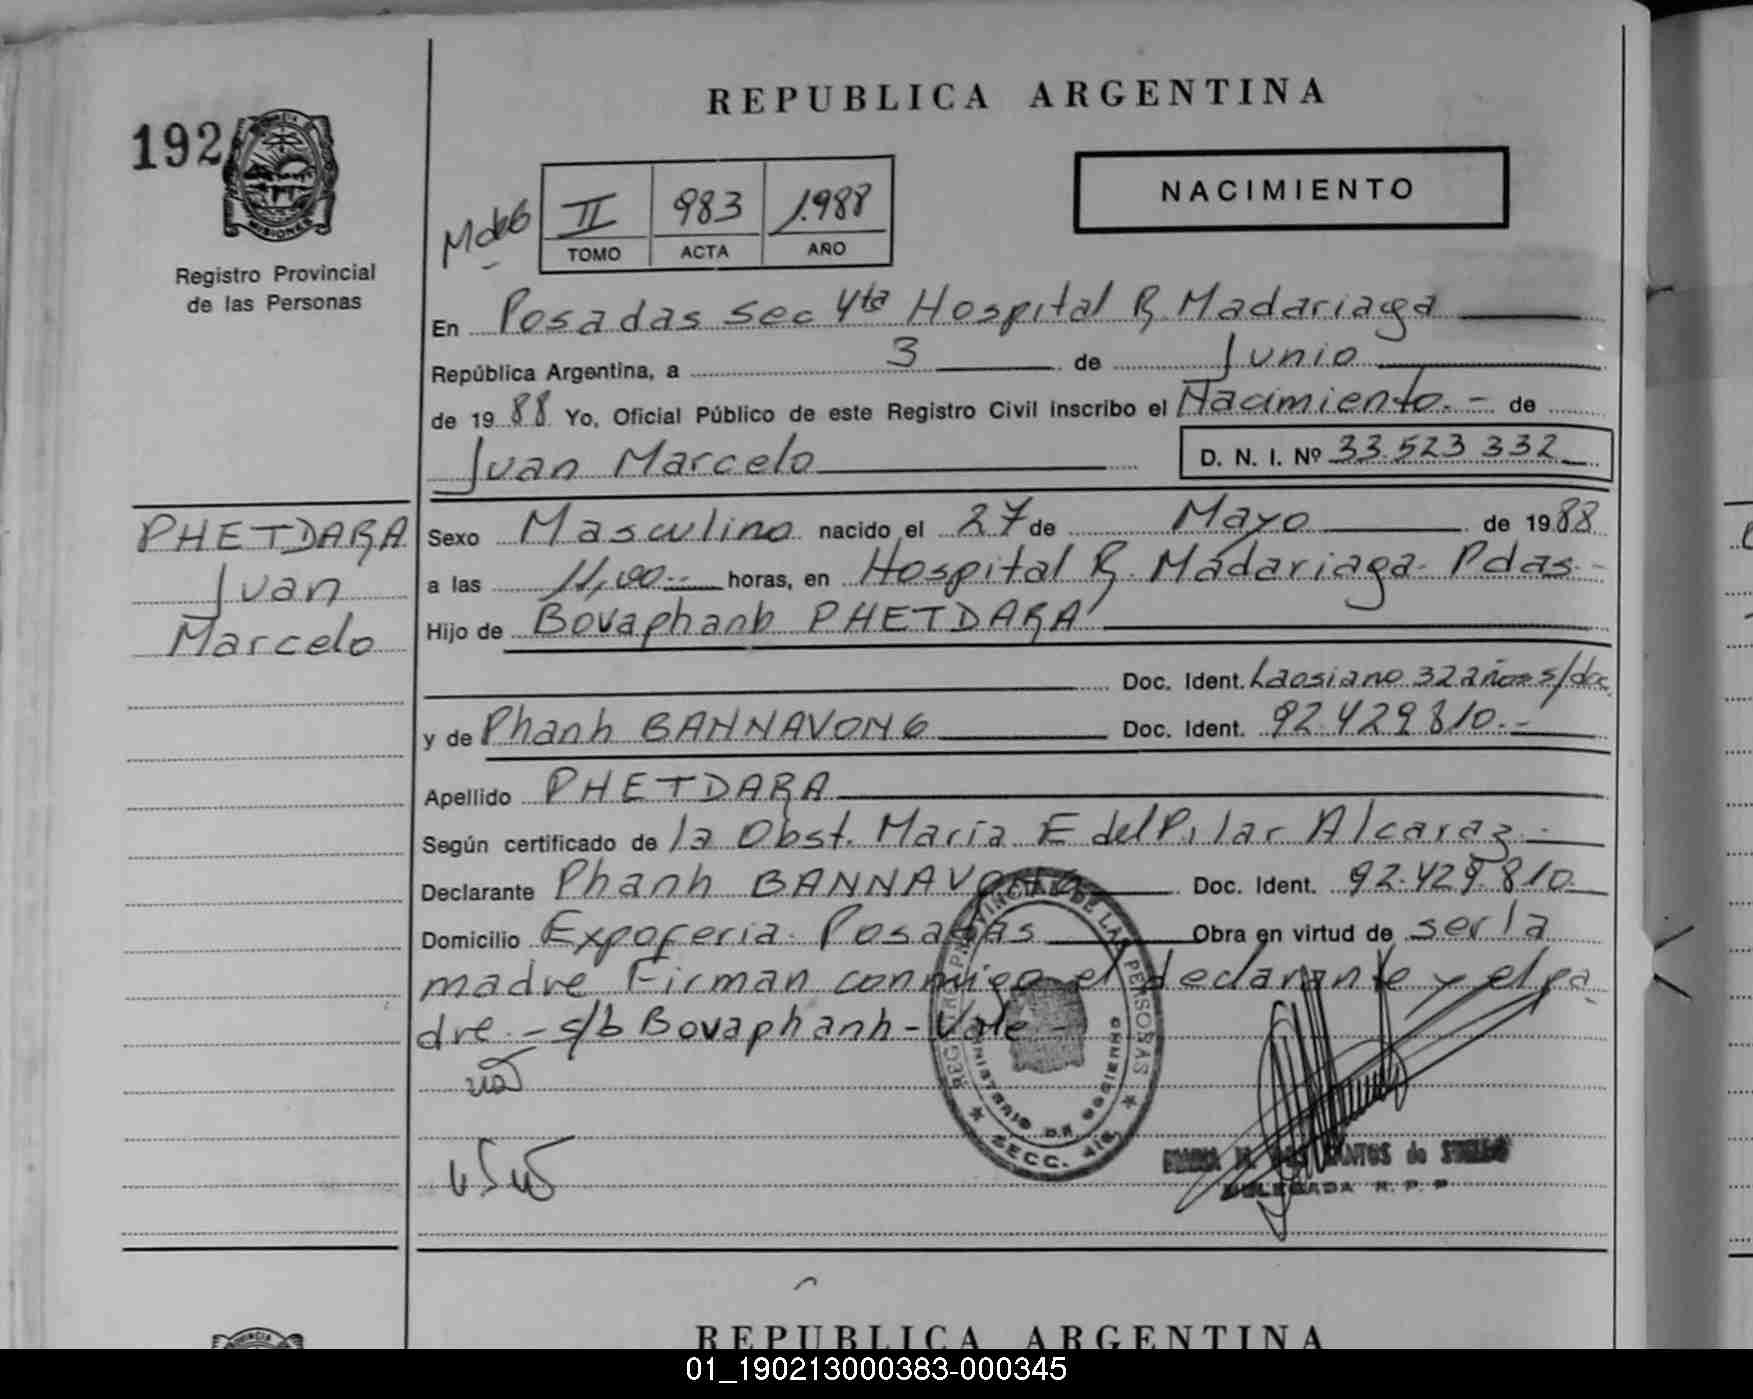 REPUBLICA ARGENTINA
192
MISIONES
Registro Provincial
de las Personas
II 983 1.988
TOMO ACTA AÑO
NACIMIENTO
En Posadas sec 4ta Hospital R. Madariaga
República Argentina, a 3 de Junio
de 1988 Yo, Oficial Público de este Registro Civil inscribo el Nacimiento.- de
Juan Marcelo D. N. I. Nº 33.523.332
PHETDARA
Juan
Marcelo
Sexo Masculino nacido el 27 de Mayo de 1988
a las 11,00.- horas, en Hospital R. Madariaga. Pdas.-
Hijo de Bovaphanb PHETDARA
Doc. Ident. Laosiano 32 años s/doc
y de Phanh BANNAVONG Doc. Ident. 92.429.810.-
Apellido PHETDARA
Según certificado de la Obst. María E del Pilar Alcaraz.-
Declarante Phanh BANNAVONG Doc. Ident. 92.429.810.
Domicilio Expoferia. Posadas Obra en virtud de ser la
madre Firman conmigo el declarante y el pa
dre.- s/b Bovaphanh - Vale -
REGISTRO PROVINCIAL DE LAS PERSONAS
MINISTERIO DE GOBIERNO
SECC. 4ta.
DELEGADA R. P. P.
REPUBLICA ARGENTINA
01_190213000383-000345